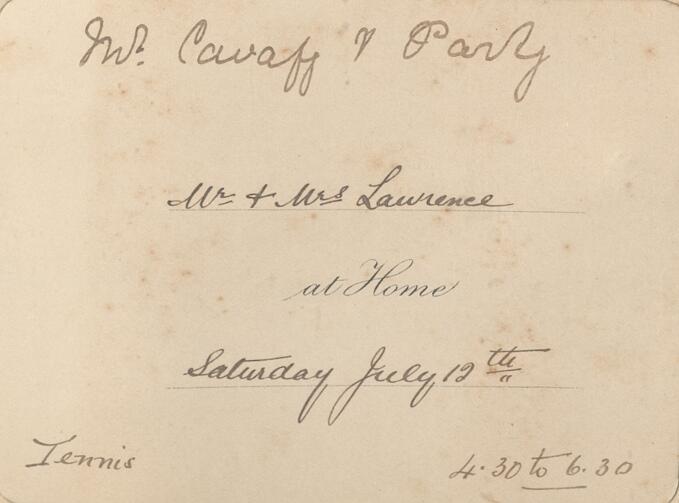 Mr. Cavaffy & Party
Mr & Mrs Lawrence
at Home
Saturday July 12th
Tennis
4.30 to 6.30